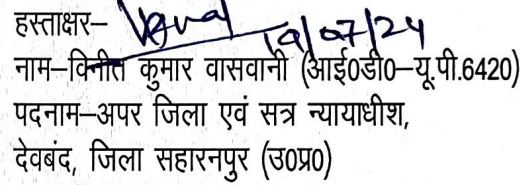 हस्ताक्षर– 19/07/24
नाम–विनीत कुमार वासवानी (आई०डी०–यू.पी.6420)
पदनाम–अपर जिला एवं सत्र न्यायाधीश,
देवबंद, जिला सहारनपुर (उ०प्र०)